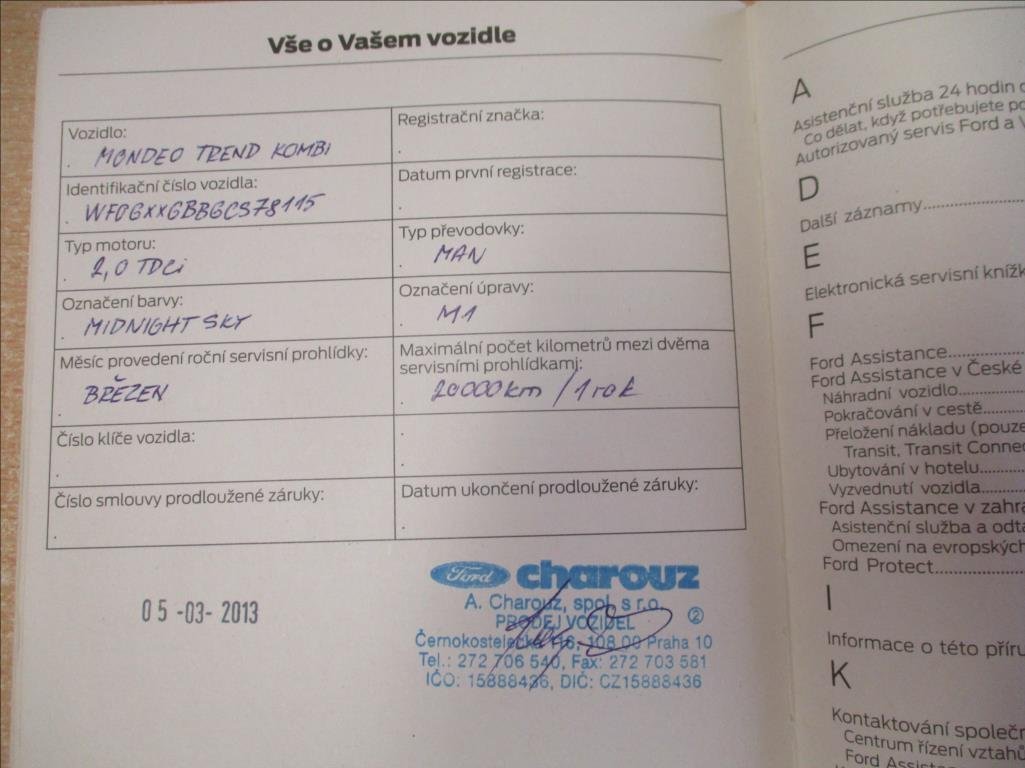 Vše o Vašem vozidle
Vozidlo:
MONDEO TREND KOMBI
Registrační značka:
Identifikační číslo vozidla:
WF0GXXGBBGCS78115
Datum první registrace:
Typ motoru:
2,0 TDCi
Typ převodovky:
MAN
Označení barvy:
MIDNIGHT SKY
Označení úpravy:
M1
Měsíc provedení roční servisní prohlídky:
BŘEZEN
Maximální počet kilometrů mezi dvěma
servisními prohlídkami:
20000km / 1 rok
Číslo klíče vozidla:
Číslo smlouvy prodloužené záruky:
Datum ukončení prodloužené záruky:
05 -03- 2013
Ford charouz
A. Charouz, spol. s r.o.
PRODEJ VOZIDEL 2
Černokostelecká 116, 108 00 Praha 10
Tel.: 272 706 540, Fax: 272 703 581
IČO: 15888436, DIČ: CZ15888436
A
Asistenční služba 24 hodin
Co dělat, když potřebujete
Autorizovaný servis Ford a
D
Další záznamy
E
Elektronická servisní
F
Ford Assistance
Ford Assistance v České
Náhradní vozidlo
Pokračování v cestě
Přeložení nákladu
Transit, Transit
Ubytování v hotelu
Vyzvednutí vozidla
Ford Assistance v
Asistenční služba a
Omezení na evropských
Ford Protect
I
Informace o této
K
Kontaktování
Centrum řízení vztahů
Ford